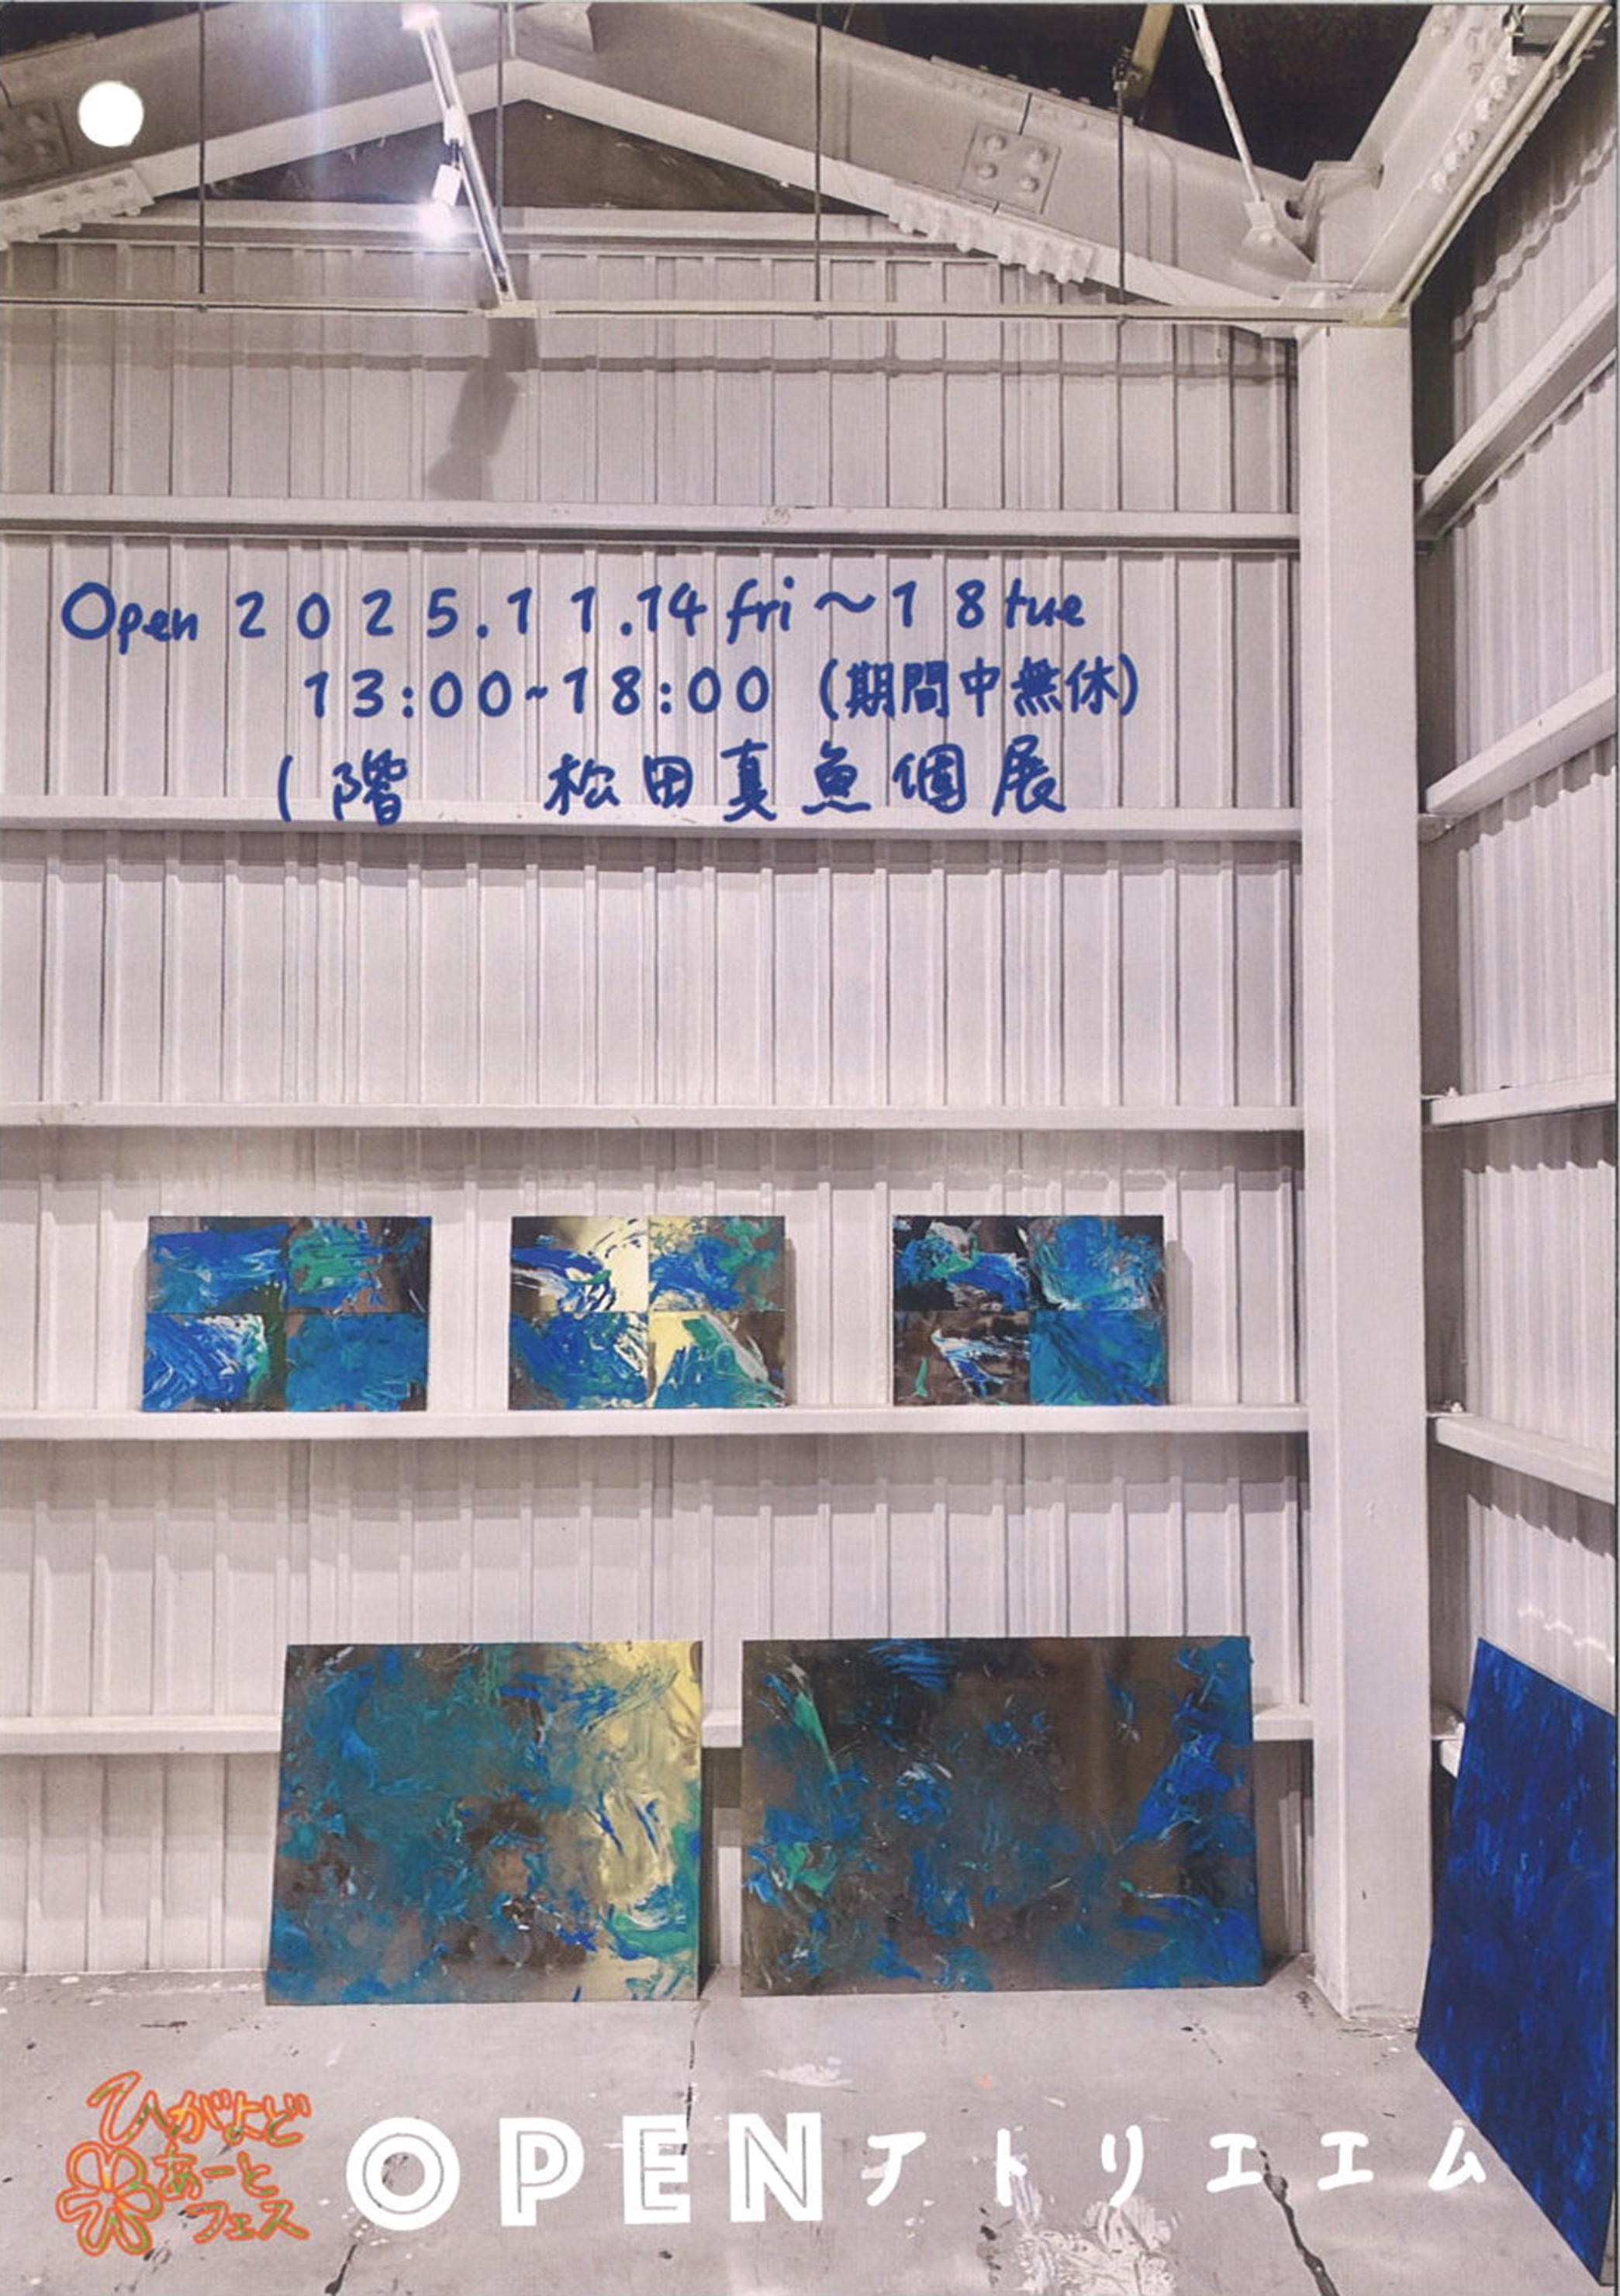 Open 2025.11.14 fri～18 tue
13:00~18:00 (期間中無休)
1階 松田真魚個展
ひがよど
あーと
フェス
OPENアトリエエム